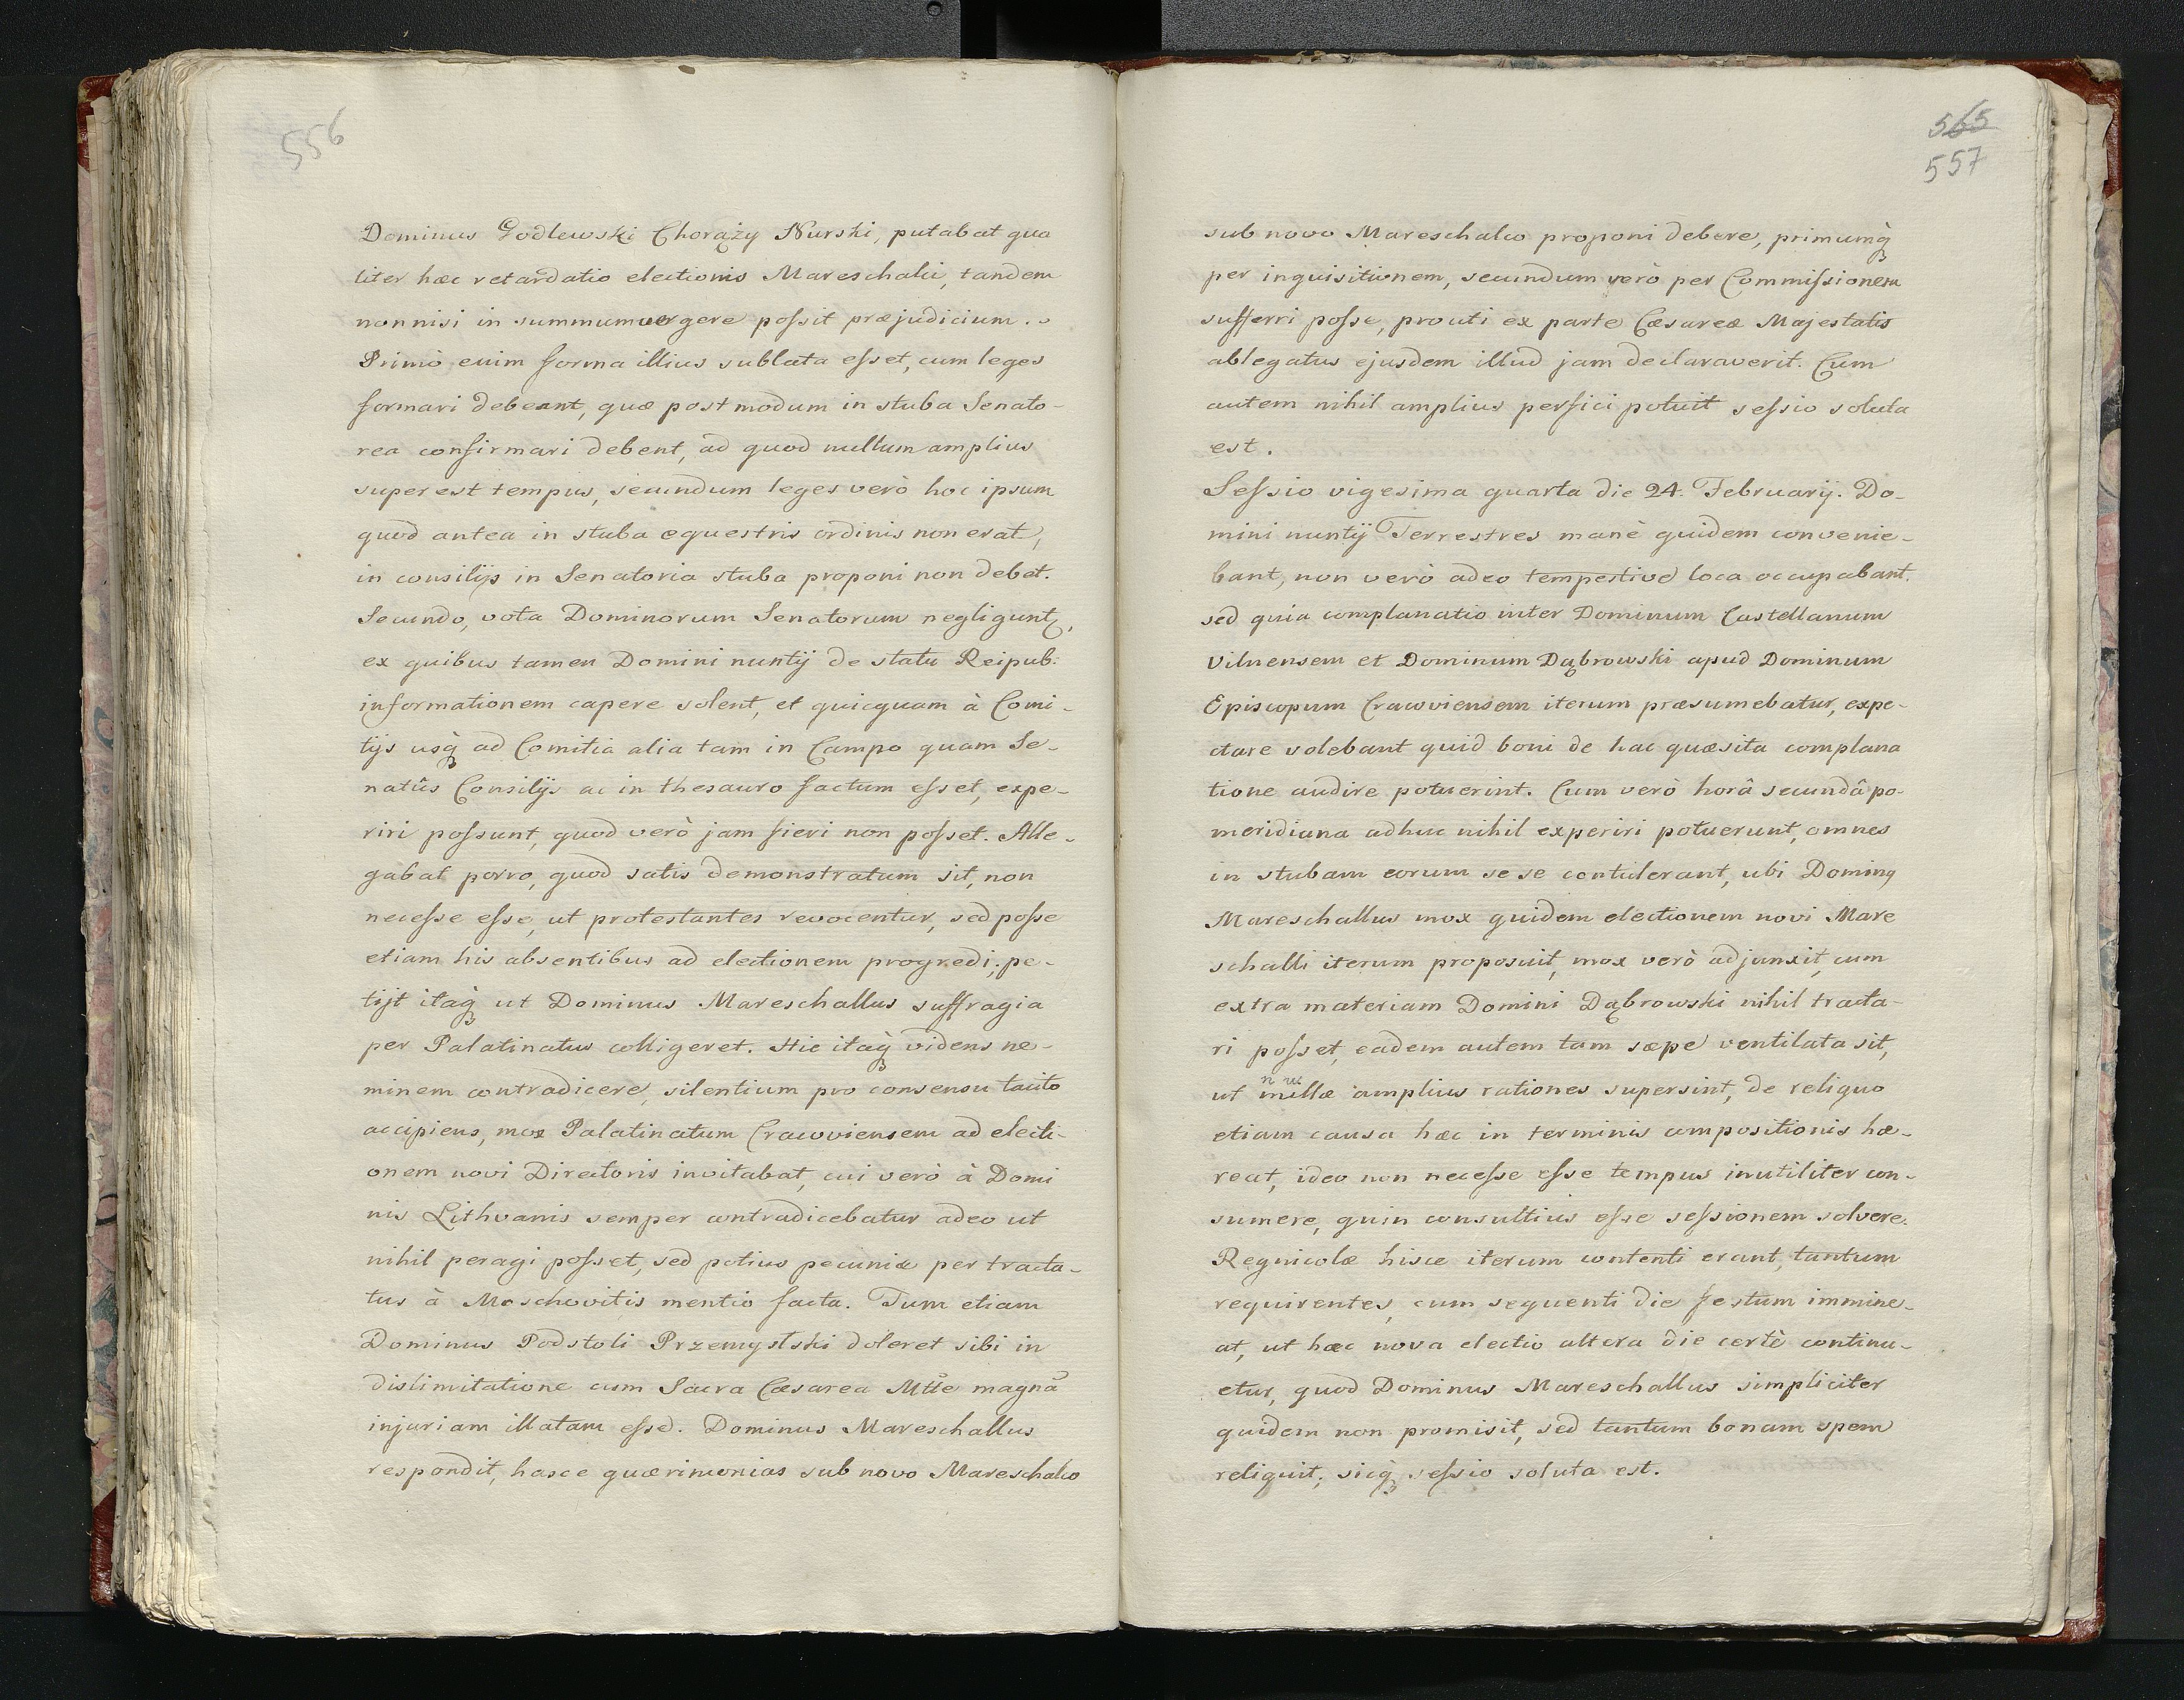 556
Dominus Godlewski Chorąży Nurski, putabat qua
liter hæc retardatio electionis Mareschalii, tandem
nonnisi in summum vergere poſsit præjudicium.
Primò enim forma illius sublata eſset, cum leges
formari debeant, quæ postmodum in stuba Senato-
rea confirmari debent, ad quod nullum amplius
superest tempus, secundum leges verò hoc ipsum
quod antea in stuba equestris ordinis non erat,
in consilijs in Senatoria stuba proponi non debet.
Secundo, vota Dominorum Senatorum negligunt,
ex quibus tamen Domini nuntij de statu Reipub:
informationem capere solent, et quicquam à Comi-
tijs usq̀ ad Comitia alia tam in Campo quam Se-
natûs Consilijs ac in thesauro factum eſset, expe-
riri poſsunt, quod verò jam fieri non poſset. Alle-
gabat porro, quod satis demonstratum sit, non
neceſse eſse, ut protestantes revocentur, sed poſse
etiam his absentibus ad electionem progredi; pe-
tijt itaq̀ ut Dominus Mareschallus suffragia
per Palatinatus colligeret. Hic itaq̀ videns ne-
minem contradicere, silentium pro consensu tacito
accipiens, mox Palatinatum Cracoviensem ad electi-
onem novi Directoris invitabat, cui verò à Domi
nis Lithvanis semper contradicebatur adeo ut
nihil peragi poſset, sed potius pecuniæ per tracta-
tus à Moschovitis mentio facta. Tum etiam
Dominus Podstoli Przemyslski doleret sibi in
dislimitatione cum Sacra Cæsarea Mtte magnā
injuriam illatam eſse. Dominus Mareschallus
respondit, hasce quærimonias sub novo Mareschalco
565
557
sub novo Mareschalco proponi debere, primumq̀
per inquisitionem, secundum verò per Commiſsionem
sufferri poſse, prouti ex parte Cæsareæ Majestatis
ablegatus ejusdem illud jam declaraverit. Cum
autem nihil amplius perfici potuit seſsio soluta
est.
Seſsio vigesima quarta die 24. Februarij. Do-
mini nuntij Terrestres manè quidem convenie-
bant, non verò adeo tempestive loca occupabant.
sed quia complanatio inter Dominum Castellanum
Vilnensem et Dominum Dąbrowski apud Dominum
Episcopum Cracoviensem iterum præsumebatur, expe-
ctare volebant quid boni de hac quæsita complana
tione audire potuerint. Cum verò horâ secundâ po-
meridiana adhuc nihil experiri potuerunt, omnes
in stubam eorum sese contulerant, ubi Dominꝯ
Mareschallus mox quidem electionem novi Mare
schalli iterum proposuit, mox verò adjunxit, cum
extra materiam Domini Dąbrowski nihil tracta-
ri poſset, eadem autem tam sæpe ventilata sit,
ut nullæ amplius rationes supersint, de reliquo
etiam causa hæc in terminis compositionis hæ-
reat, ideo non neceſse eſse tempus inutiliter con-
sumere, quin consultius eſse seſsionem solvere.
Regnicolæ hisce iterum contenti erant, tantum
requirentes, cum sequenti die festum immine-
at, ut hæc nova electio altera die certè continu-
etur, quod Dominus Mareschallus simpliciter
quidem non promisit, sed tantum bonam spem
reliquit; sicq̀ seſsio soluta est.